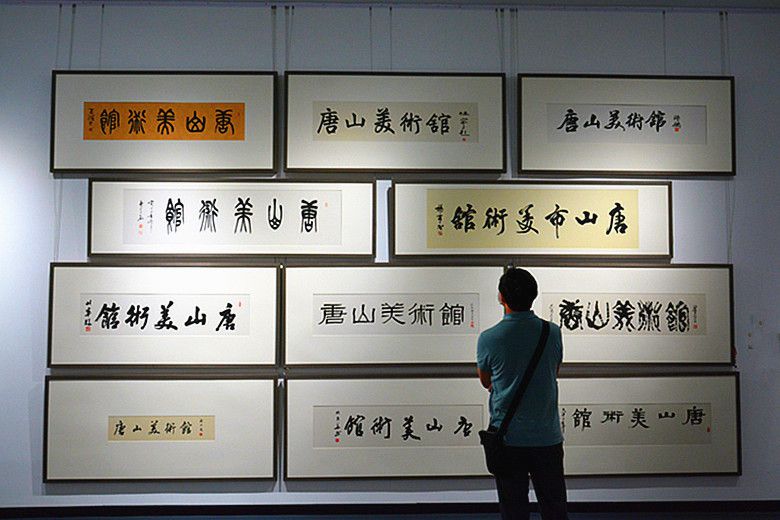 唐山美術館
唐山美術館
唐山美術館
唐山美術館
唐山市美術館
唐山美術館
唐山美術館
唐山美術館
唐山美術館
唐山美術館
唐山美術館